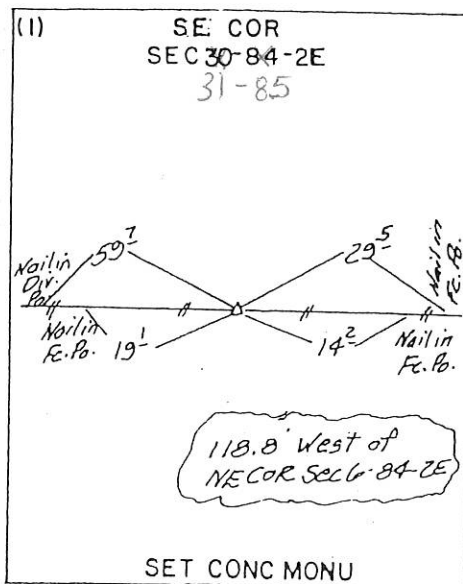 (1) SE COR
SEC 30-84-2E
31-85
59 7
29 5
Nail in
Div.
Po.
Nail in
Fc. Po.
Nail in
Fc. Po.
19 1
14 2
Nail in
Fc. Po.
118.8' West of
NE COR Sec 6-84-2E
SET CONC MONU